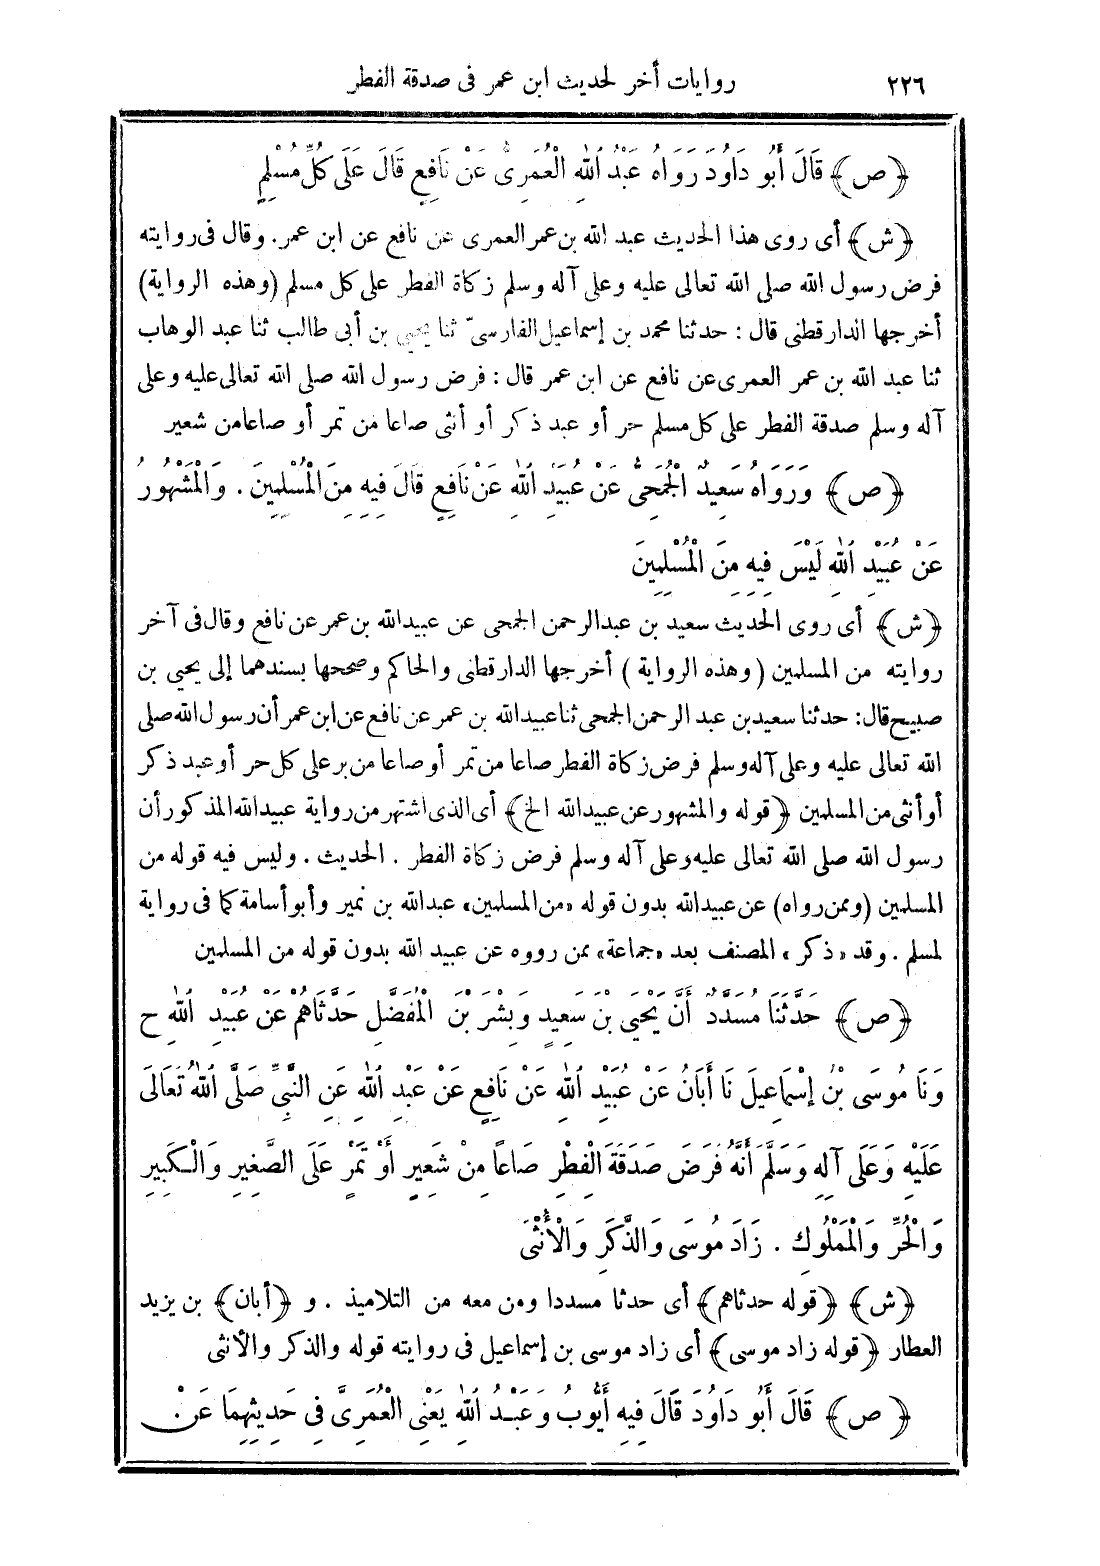 ٢٢٦ روايات أخر لحديث ابن عمر فى صدقة الفطر
﴿ ص ﴾ قَالَ أَبُو دَاوُدَ رَوَاهُ عَبْدُ اللهِ الْعُمَرِىُّ عَنْ نَافِعٍ قَالَ عَلَى كُلِّ مُسْلِمٍ
﴿ش﴾ أى روى هذا الحديث عبد الله بن عمر العمرى عن نافع عن ابن عمر. وقال فى روايته
فرض رسول الله صلى الله تعالى عليه وعلى آله وسلم زكاة الفطر على كل مسلم (وهذه الرواية)
أخرجها الدارقطنى قال : حدثنا محمد بن إسماعيل الفارسىّ ثنا يحيى بن أبى طالب ثنا عبد الوهاب
ثنا عبد الله بن عمر العمرى عن نافع عن ابن عمر قال : فرض رسول الله صلى الله تعالى عليه وعلى
آله وسلم صدقة الفطر على كل مسلم حر أو عبد ذكر أو أنثى صاعا من تمر أو صاعا من شعير
﴿ ص ﴾ وَرَوَاهُ سَعِيدٌ الْجُمَحِىُّ عَنْ عُبَيْدِ اللهِ عَنْ نَافِعٍ قَالَ فِيهِ مِنَ الْمُسْلِمِينَ . وَالْمَشْهُورُ
عَنْ عُبَيْدِ اللهِ لَيْسَ فِيهِ مِنَ الْمُسْلِمِينَ
﴿ش﴾ أى روى الحديث سعيد بن عبد الرحمن الجمحى عن عبيد الله بن عمر عن نافع وقال فى آخر
روايته من المسلمين (وهذه الرواية) أخرجها الدارقطنى والحاكم وصححها بسندهما إلى يحيى بن
صبيح قال: حدثنا سعيد بن عبد الرحمن الجمحى ثنا عبيد الله بن عمر عن نافع عن ابن عمر أن رسول الله صلى
الله تعالى عليه وعلى آله وسلم فرض زكاة الفطر صاعا من تمر أو صاعا من بر على كل حر أو عبد ذكر
أو أنثى من المسلمين ﴿قوله والمشهور عن عبيد الله الخ﴾ أى الذى اشتهر من رواية عبيد الله المذكور أن
رسول الله صلى الله تعالى عليه وعلى آله وسلم فرض زكاة الفطر . الحديث . وليس فيه قوله من
المسلمين (وممن رواه) عن عبيد الله بدون قوله «من المسلمين» عبد الله بن نمير وأبو أسامة كما فى رواية
لمسلم . وقد «ذكر» المصنف بعد «جماعة» ممن رووه عن عبيد الله بدون قوله من المسلمين
﴿ ص ﴾ حَدَّثَنَا مُسَدَّدٌ أَنَّ يَحْيَى بْنَ سَعِيدٍ وَبِشْرَ بْنَ الْمُفَضَّلِ حَدَّثَاهُمْ عَنْ عُبَيْدِ اللهِ ح
وَنَا مُوسَى بْنُ إِسْمَاعِيلَ نَا أَبَانُ عَنْ عُبَيْدِ اللهِ عَنْ نَافِعٍ عَنْ عَبْدِ اللهِ عَنِ النَّبِىِّ صَلَّى اللهُ تَعَالَى
عَلَيْهِ وَعَلَى آلِهِ وَسَلَّمَ أَنَّهُ فَرَضَ صَدَقَةَ الْفِطْرِ صَاعاً مِنْ شَعِيرٍ أَوْ تَمْرٍ عَلَى الصَّغِيرِ وَالْكَبِيرِ
وَالْحُرِّ وَالْمَمْلُوكِ . زَادَ مُوسَى وَالذَّكَرِ وَالْأُنْثَى
﴿ش﴾ ﴿قوله حدثاهم﴾ أى حدثا مسددا ومن معه من التلاميذ . و ﴿أبان﴾ بن يزيد
العطار ﴿قوله زاد موسى﴾ أى زاد موسى بن إسماعيل فى روايته قوله والذكر والأنثى
﴿ ص ﴾ قَالَ أَبُو دَاوُدَ قَالَ فِيهِ أَيُّوبُ وَعَبْدُ اللهِ يَعْنِى الْعُمَرِىَّ فِى حَدِيثِهِمَا عَنْ